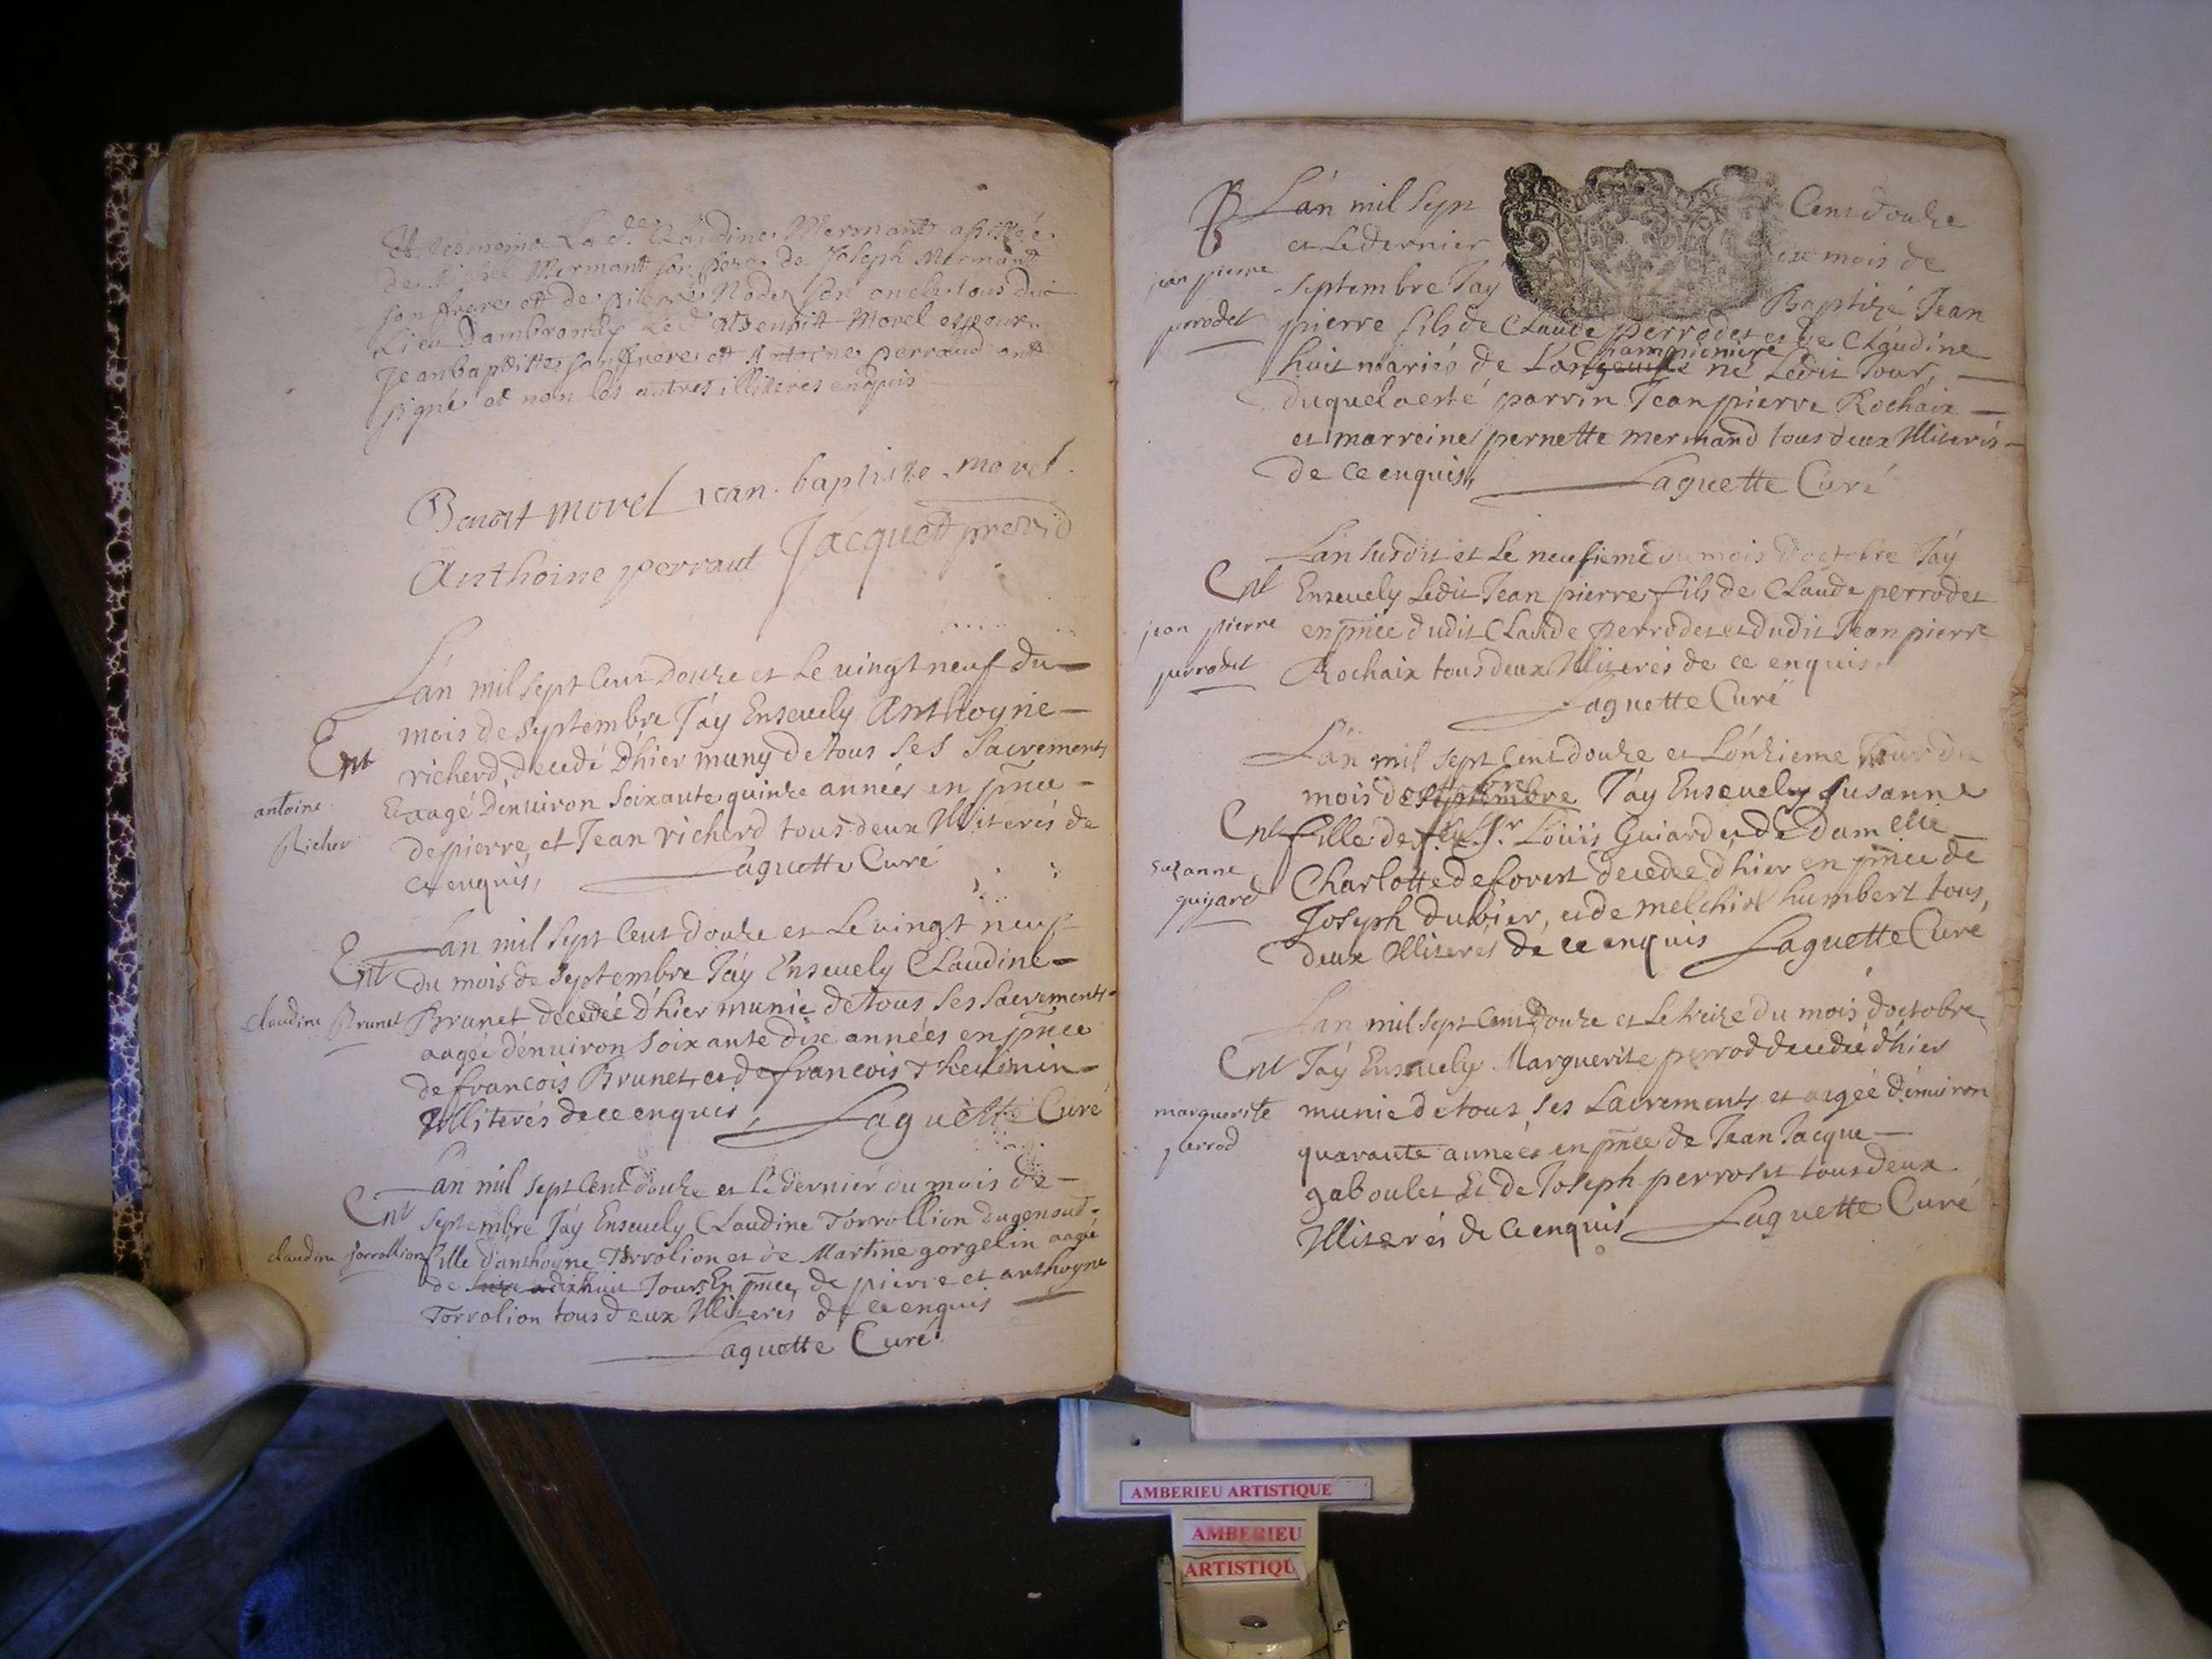 Et tesmoins La d.e Claudine Mermant assistée
de Michel Mermant son pere de Joseph Mermant
son frere et de pierre Nodet son oncle tous du
Lieu Dambronay Le d. Benoitt Morel epoux
Jean baptiste son frere et Antoine perraud ont
signé et non les autres illiteres enquis
Benoit morel jean baptiste morel
Anthoine perraut Jacquet
L'an mil sept Cent Douze et Le vingt neuf du
mois de Septembre J'ay Ensevely Anthoyne
Ent
richerd, decedé D'hier muny de tous ses Sacrements
Et aagé D'environ soixante quinze années en pñce
antoine
Richer
de pierre et Jean richerd tous deux Illiterés de
ce enquis, Laguette Curé
L'an mil sept Cent douze et Le vingt neuf
Ent du mois de Septembre J'ay Ensevely Claudine
claudine Brunet Brunet decedée d'hier munie de tous ses sacrements
aagée d'environ soixante dix années en pñce
de francois Brunet et de francois
Illiterés de ce enquis, Laguette Curé
L'an mil sept Cent douze et Le dernier du mois de
Ent Septembre J'ay Ensevely Claudine Torrollion dugenoud
claudine Torrollion fille d'anthoyne Torrolion et de Martine gorgelin aagée
de dixhuit Jours En pñce de pierre et anthoyne
Torrolion tous deux Illiterés de ce enquis
Laguette Curé
B L'an mil Sept Cent douze
et Le dernier du mois de
jean pierre
perrodet
septembre J'ay Baptizé Jean
pierre fils de Claude perrodet et de Claudine
huit mariés de né Ledit Jour,
duquel a esté parrin Jean pierre Rochaix
et marreine pernette mermand tous deux Illiterés
de ce enquis, Laguette Curé
L'an susdit et Le neufieme du mois d'octobre J'ay
Ent Ensevely Ledit Jean pierre fils de Claude perrodet
jean pierre
perrodet
en pñce dudit Claude perrodet et dudit Jean pierre
Rochaix tous deux Illiterés de ce enquis,
Laguette Curé
L'an mil sept Cent douze et L'onzieme Jour du
mois de J'ay Ensevely Susanne
Ent fille de feu Sr. Louis Guiard et de Damelle
suzanne
guyard
Charlotte deforest decedee d'hier en pñce de
Joseph dubier, et de melchiol humbert tous
deux Illiterés de ce enquis Laguette Curé
L'an mil sept Cent Douze et Le treize du mois d'octobre
Ent J'ay Ensevely Marguerite perrod decedée d'hier
marguerite
perrod
munie de tous ses Sacrements et aagée d'environ
quarante années en pñce de Jean Jacque
gaboulet Et de Joseph perrodet tous deux
Illiterés de ce enquis Laguette Curé
AMBERIEU ARTISTIQUE
AMBERIEU
ARTISTIQU